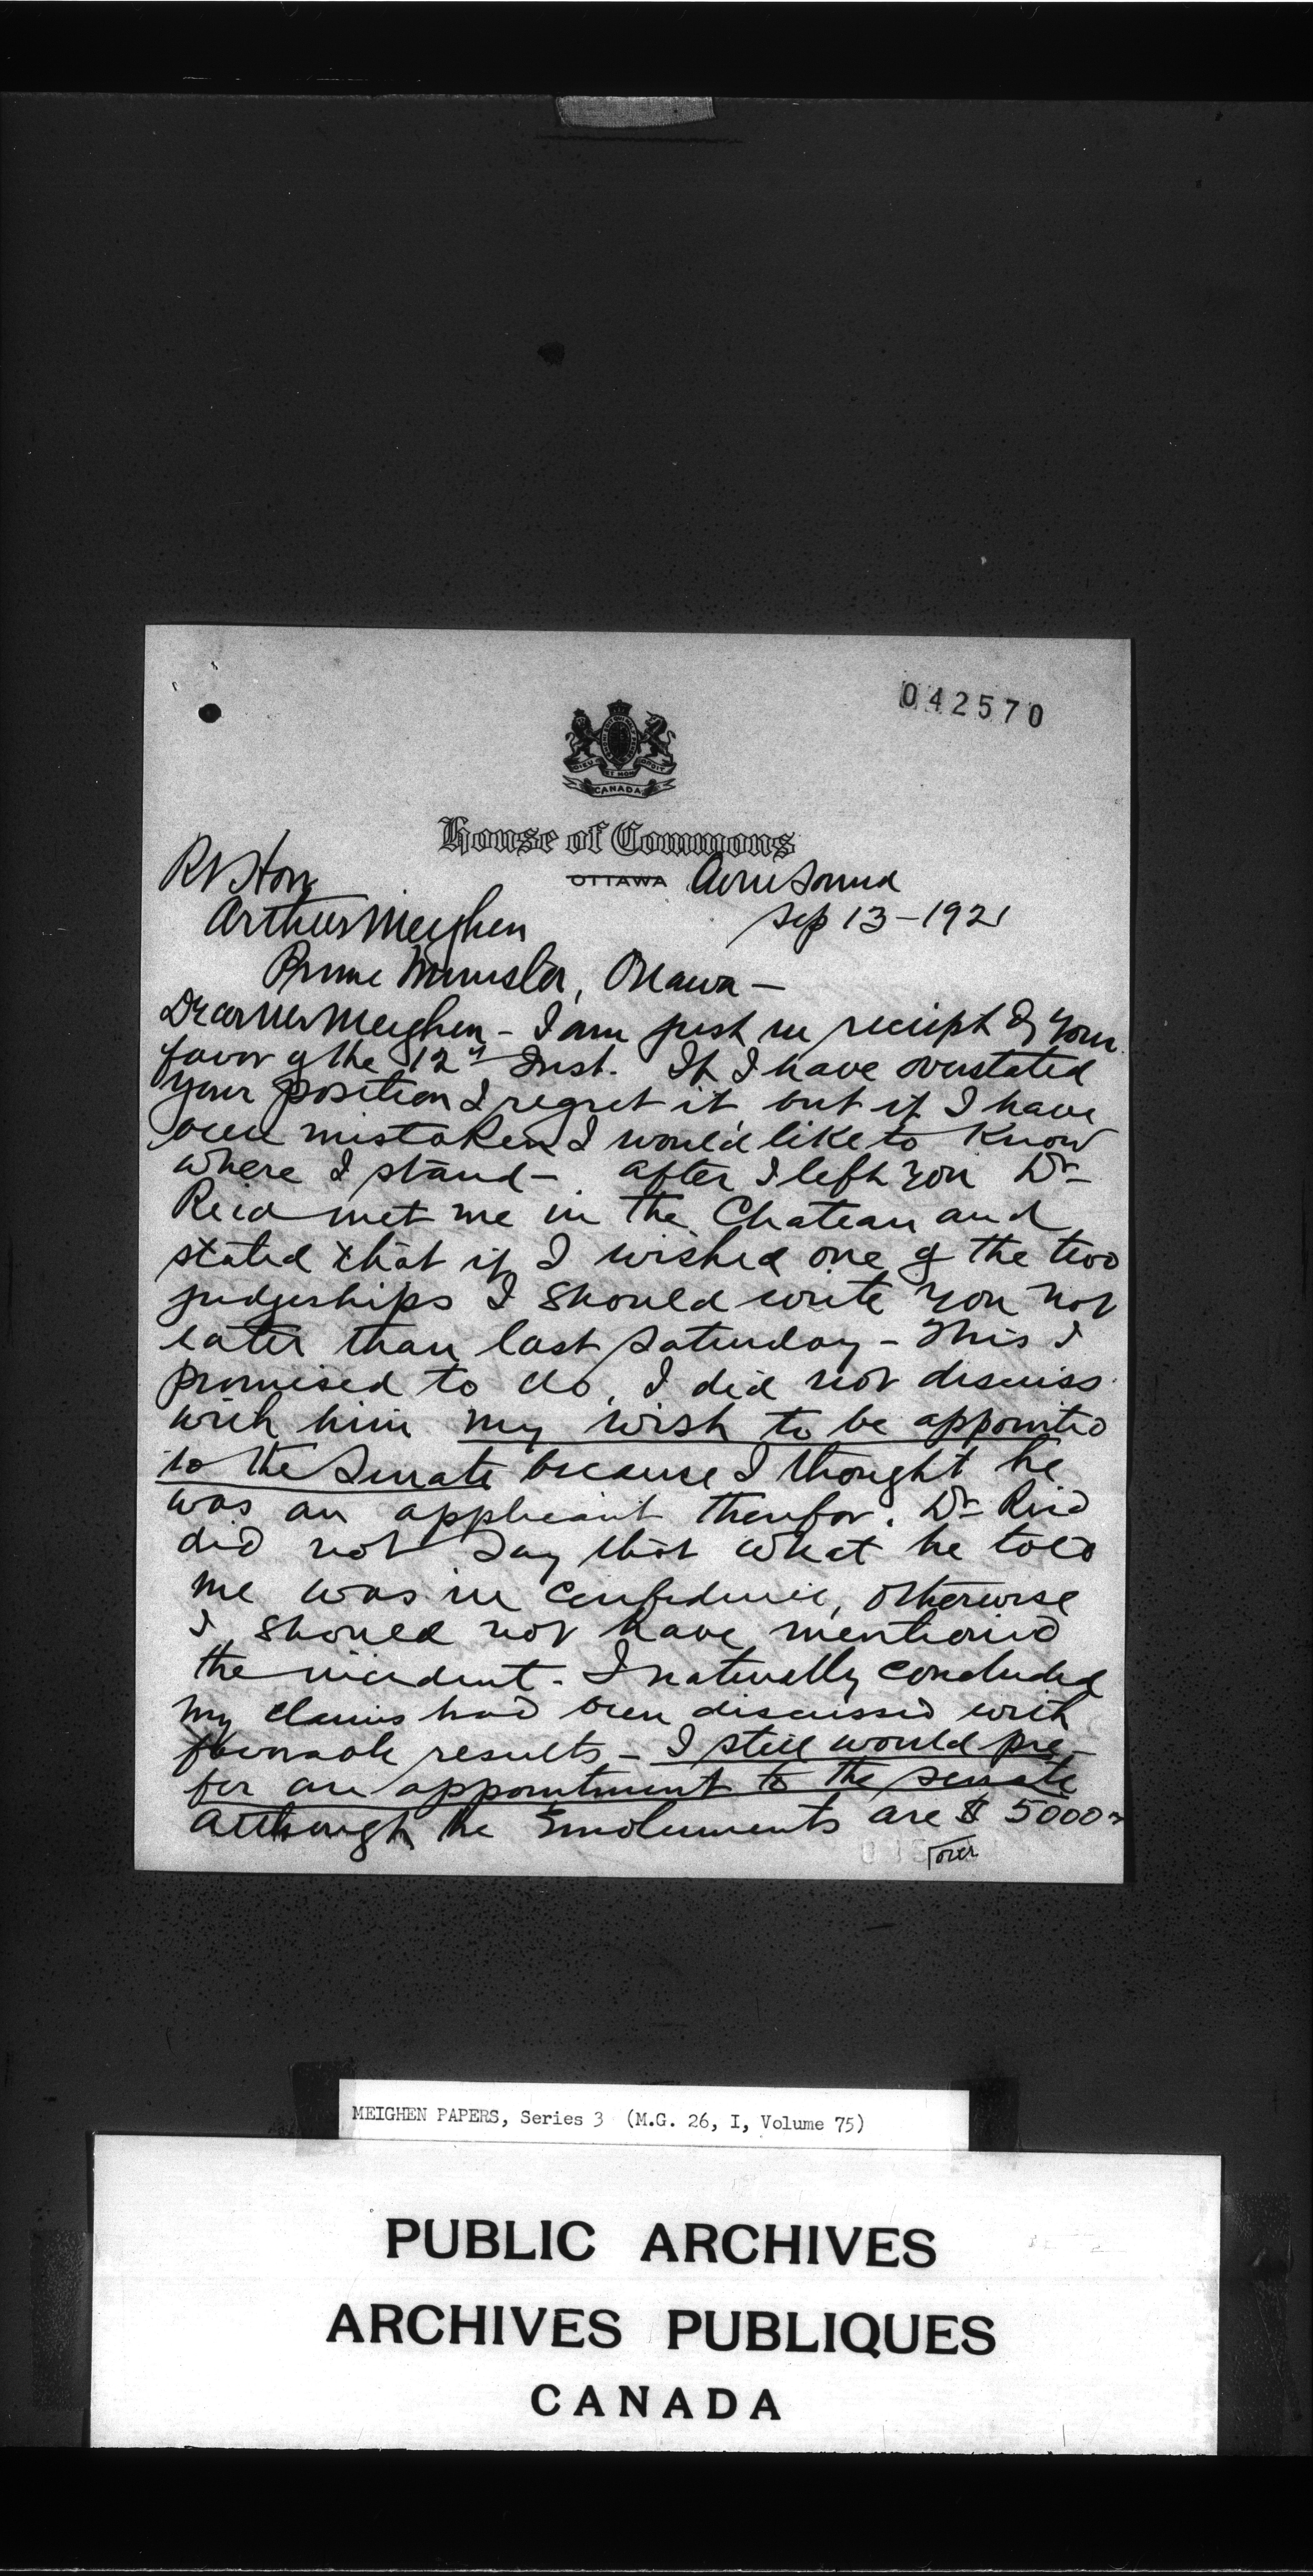 042570
DIEU ET MON DROIT
CANADA
House of Commons
OTTAWA Owen Sound
Sep 13-1921
Rt Hon
Arthur Meighen
Prime Minister, Ottawa-
Dear Mr Meighen - I am just in receipt of your
favor of the 12th Inst. If I have overstated
your position I regret it but if I have
been mistaken I would like to know
where I stand - after I left you Dr
Reid met me in the Chateau and
stated that if I wished one of the two
judgeships I should write you not
later than last Saturday - This I
promised to do, I did not discuss
with him my wish to be appointed
to the Senate because I thought he
was an applicant therefor. Dr Reid
did not say that what he told
me was in confidence, otherwise
I should not have mentioned
the incident - I naturally concluded
my claims had been discussed with
favorable results - I still would pre-
fer an appointment to the senate
although the Emoluments are $5000
over
MEIGHEN PAPERS, Series 3 (M.G. 26, I, Volume 75)
PUBLIC ARCHIVES
ARCHIVES PUBLIQUES
CANADA